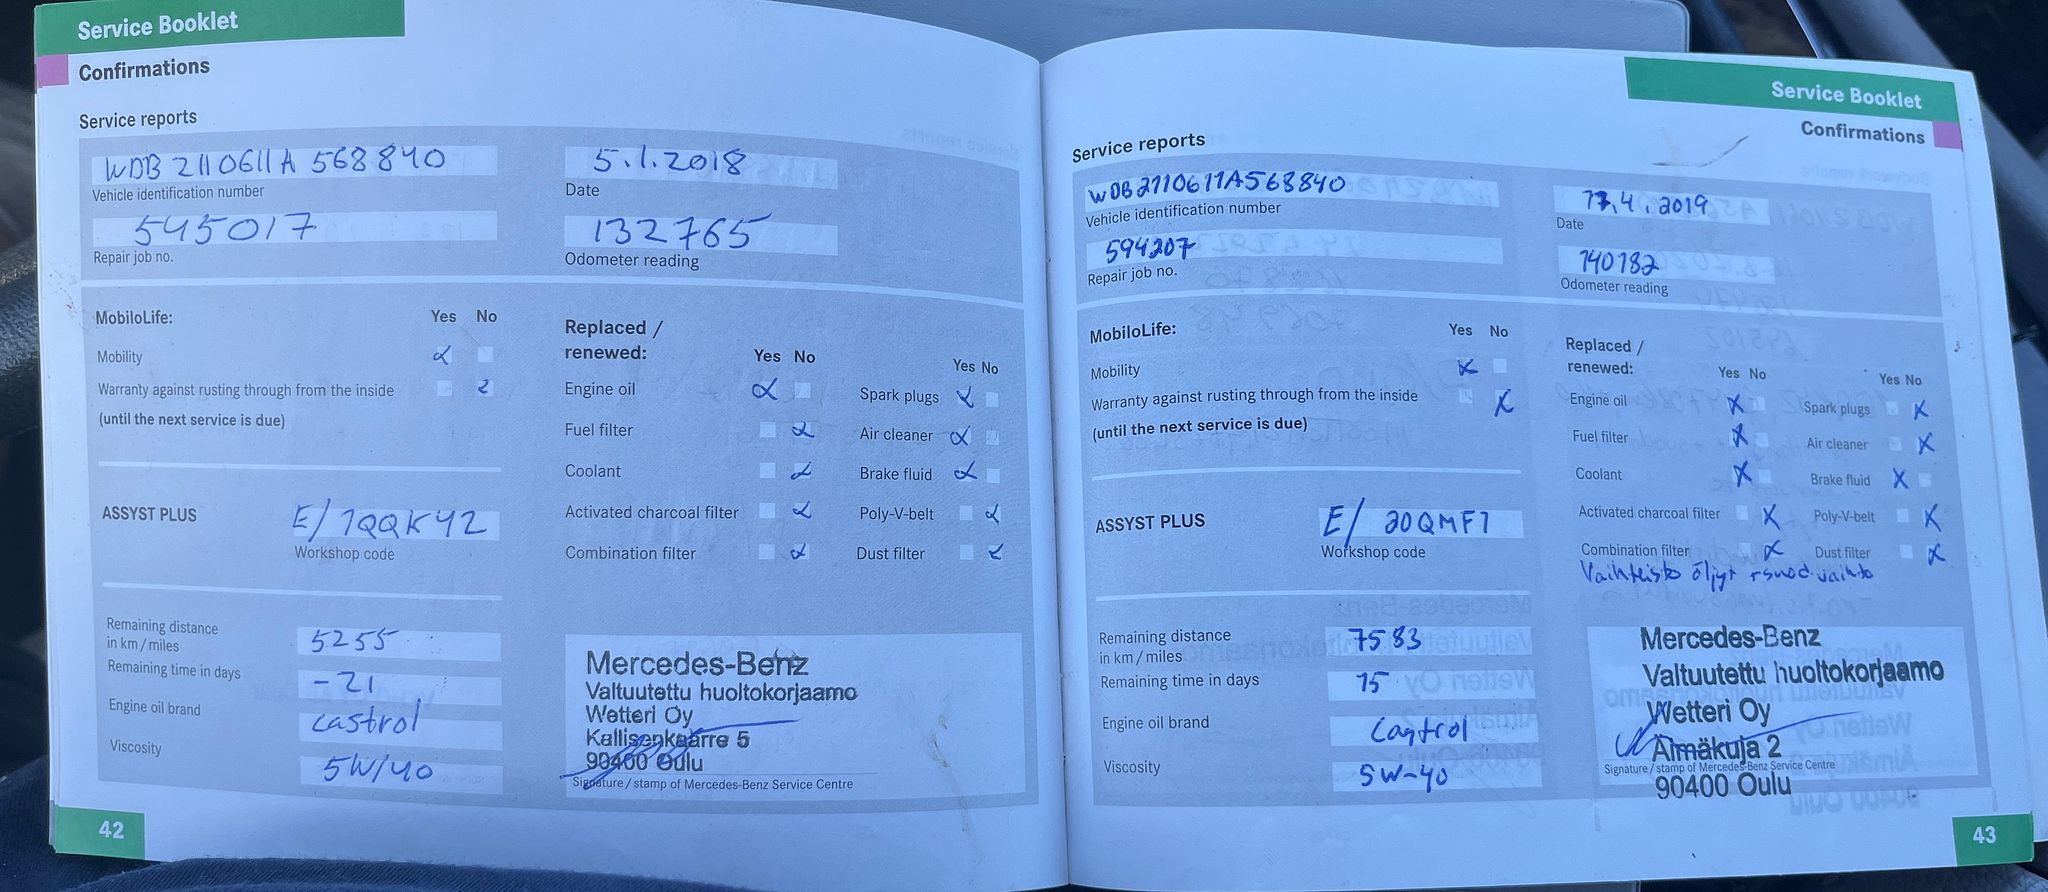 Service Booklet
Confirmations
Service reports
WDB 2110611A 568840
Vehicle identification number
5.1.2018
Date
545017
Repair job no.
132765
Odometer reading
MobiloLife:
Yes No
Mobility
Warranty against rusting through from the inside
(until the next service is due)
ASSYST PLUS
E/1QQK42
Workshop code
Replaced /
renewed:
Yes No
Yes No
Engine oil
Spark plugs
Fuel filter
Air cleaner
Coolant
Brake fluid
Activated charcoal filter
Poly-V-belt
Combination filter
Dust filter
Remaining distance
in km / miles
5255
Remaining time in days
-21
Engine oil brand
castrol
Viscosity
5W/40
Mercedes-Benz
Valtuutettu huoltokorjaamo
Wetteri Oy
Kallisenkaarre 5
90400 Oulu
Signature / stamp of Mercedes-Benz Service Centre
42
Service Booklet
Confirmations
Service reports
WDB2110611A568840
Vehicle identification number
17.4.2019
Date
594207
Repair job no.
140182
Odometer reading
MobiloLife:
Yes No
Mobility
Warranty against rusting through from the inside
(until the next service is due)
ASSYST PLUS
E/20QMF1
Workshop code
Replaced /
renewed:
Yes No
Yes No
Engine oil
Spark plugs
Fuel filter
Air cleaner
Coolant
Brake fluid
Activated charcoal filter
Poly-V-belt
Combination filter
Dust filter
Vaihteisto öljyt vaihto
Remaining distance
in km / miles
7583
Remaining time in days
15
Engine oil brand
Castrol
Viscosity
5W-40
Mercedes-Benz
Valtuutettu huoltokorjaamo
Wetteri Oy
Äimäkuja 2
Signature / stamp of Mercedes-Benz Service Centre
90400 Oulu
43